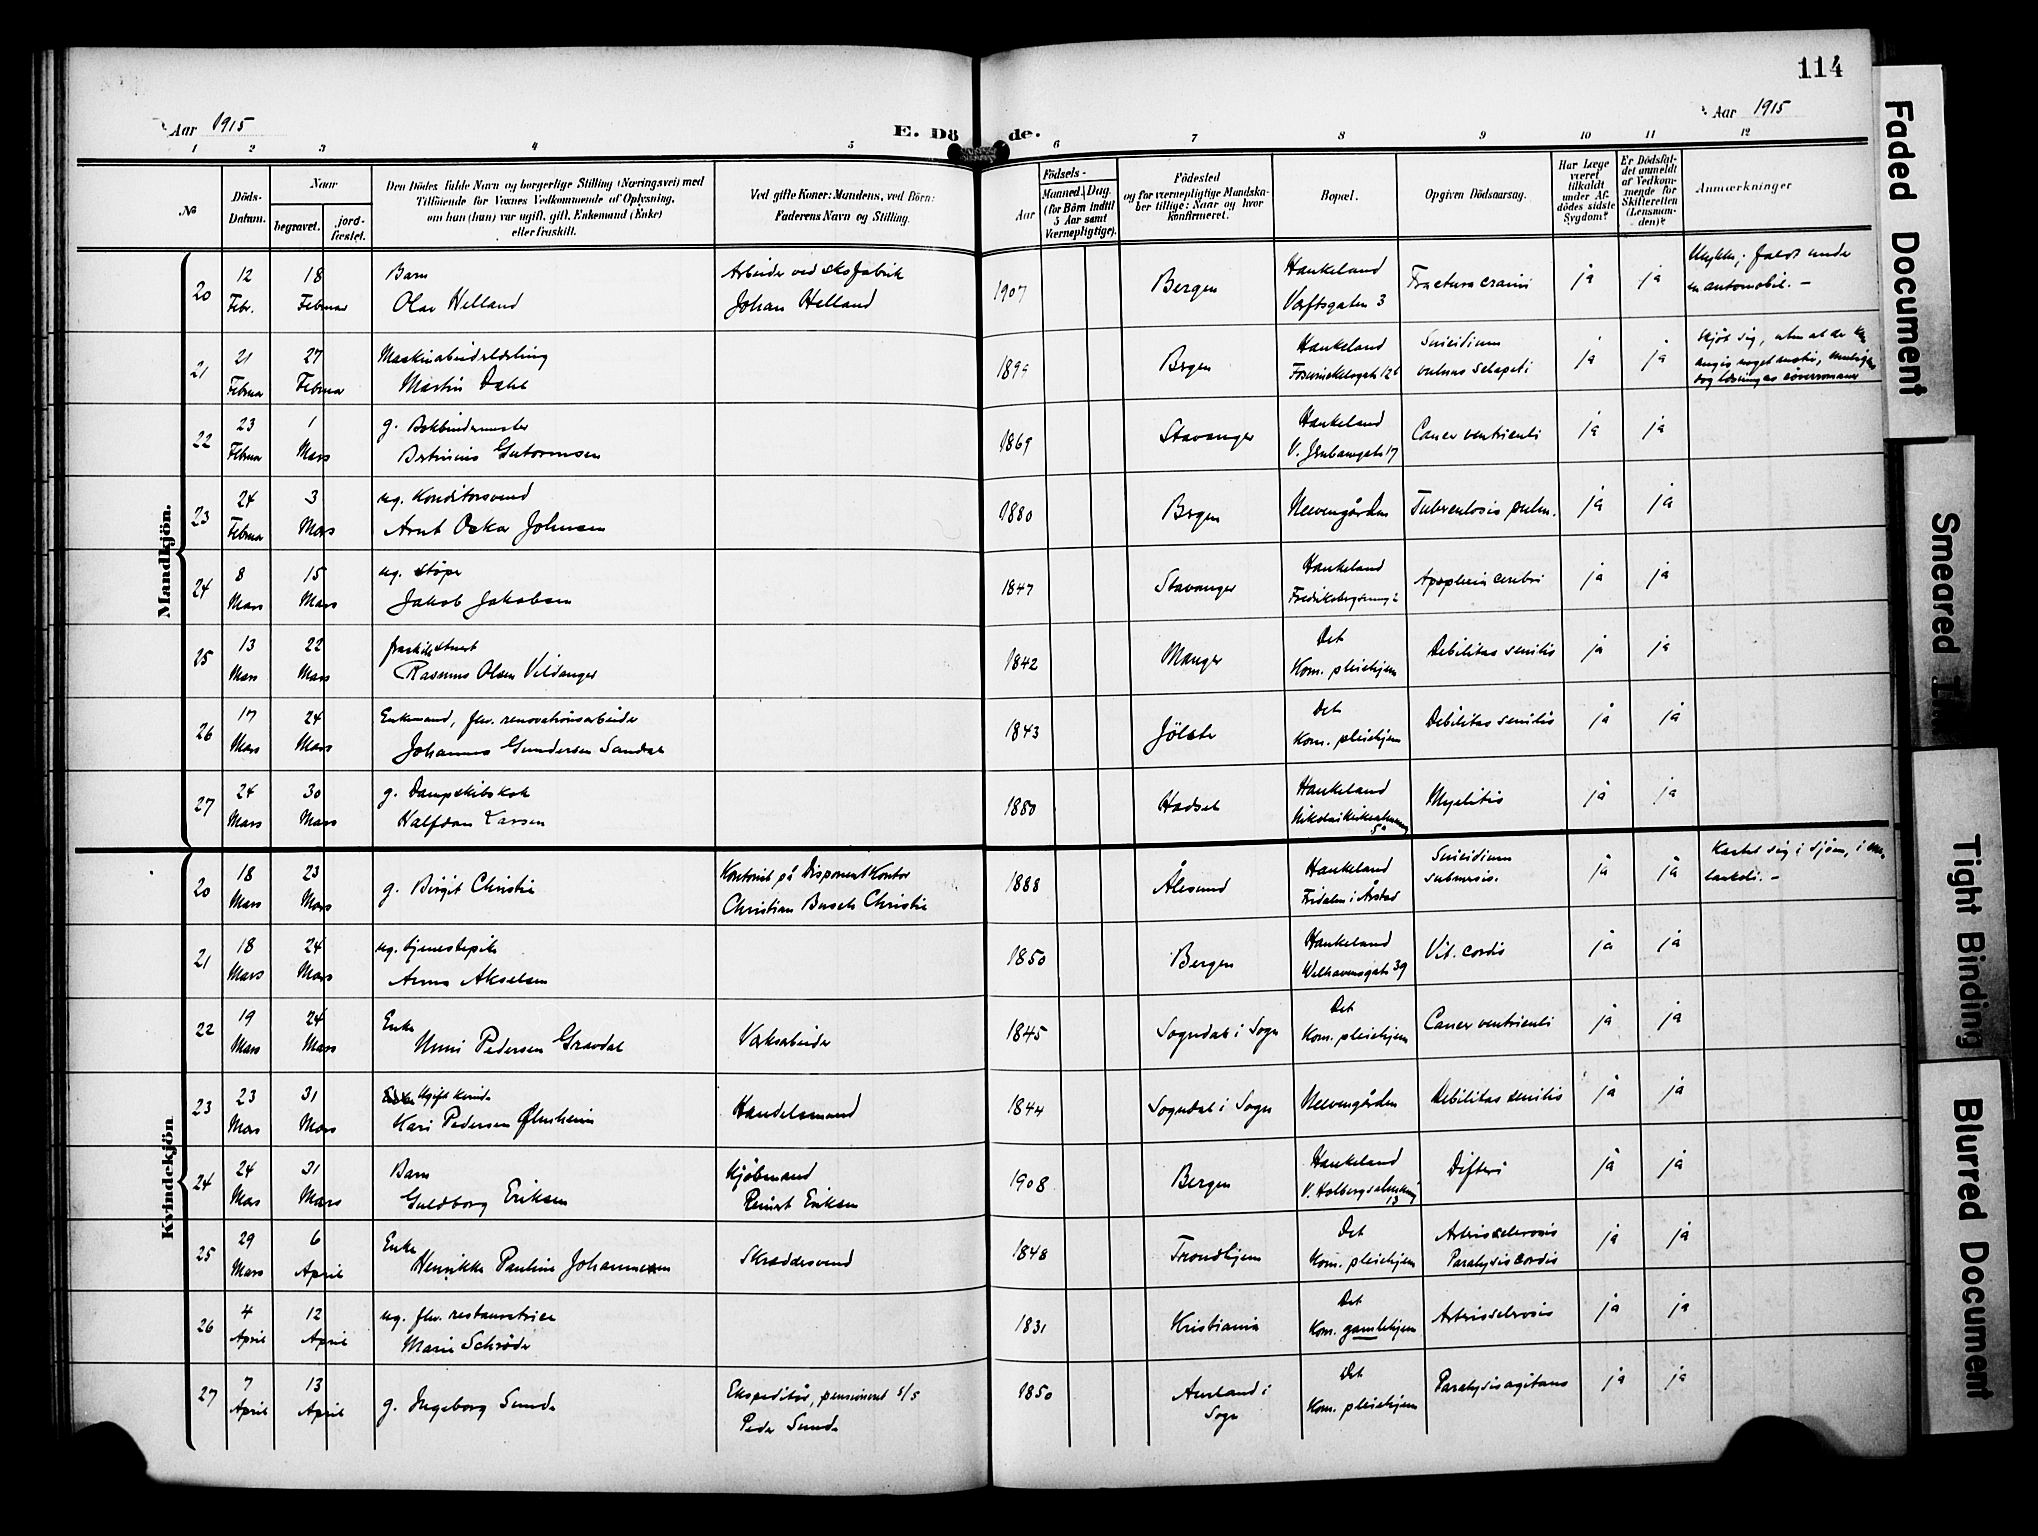 114
Aar 1915
E. Dö de.
Aar 1915
1 2 3 4 5 6 7 8 9 10 11 12
No
Döds-Datum.
Naar
begravet.
jord-fæstet.
Den Dödes fulde Navn og borgerlige Stilling (Næringsvei) med
Tilföiende for Voxnes Vedkommende af Oplysning,
om han (hun) var ugift, gift, Enkemand (Enke)
eller fraskilt.
Ved gifte Koner: Mandens, ved Börn:
Faderens Navn og Stilling.
Födsels-
Aar
Maaned & Dag
(for Börn indtil
5 Aar samt
Værnepligtige).
Födested
og for værnepligtige Mandska-
ber tillige: Naar og hvor
konfirmeret.
Bopæl.
Opgiven Dödsaarsag.
Har Læge
været
tilkaldt
under Af-
dödes sidste
Sygdom?
Er Dödsfal-
det anmeldt
af Vedkom-
mende for
Skifteretten
(Lensman-
den)?
Anmærkninger
Mandkjön.
20 12 Febr. 18 Februar Barn
Olav Helland
Arbeider ved
Johan Helland
1907 Bergen Haukeland
3
Fractura cranii ja ja Ulykke; faldt under
en automobil. —
21 21 Februar 27 Februar
Martin Dahl
1899 Bergen Haukeland
Suicidium
ja ja skjöt sig,
22 23 Februar 1 Mars g. Bokbindermester
Bertinius Gutormsen
1869 Stavanger Haukeland
17
Cancer ventriculi ja ja
23 24 Februar 3 Mars ug. Konditorsvend
Arnt Oskar Johnsen
1880 Bergen Neevengården Tuberculosis pulm. ja ja
24 8 Mars 15 Mars ug. støper
Jakob Jakobsen
1847 Stavanger Haukeland
Apoplexia cerebri ja ja
25 13 Mars 22 Mars fraskilt
Rasmus Olsen Vildanger
1842 Manger Det
Kom. pleiehjem
Debilitas senilis ja ja
26 17 Mars 24 Mars Enkemand, fhv. renovationsarbeider
Johannes Gundersen Sandal
1843 Jölster Det
Kom. pleiehjem
Debilitas senilis ja ja
27 24 Mars 30 Mars g. Dampskibskok
Halfdan Larsen
1880 Hadsel Haukeland
Nikolaikirkealmenning
5a
Myelitis ja ja
Kvindekjön
20 18 Mars 23 Mars g. Birgit Christie
Kontorist på Disponent Kontor
Christian Busch Christie
1888 Ålesund Haukeland
Fridalen i Årstad
Suicidium
submersio. ja ja Kastet sig i sjöen, i
21 18 Mars 24 Mars ug. tjenestepike
Anna Akselsen
1850 Bergen Haukeland
Welhavensgate 39
Vit. cordis ja ja
22 19 Mars 24 Mars Enke
Unni Pedersen Gravdal
Verksarbeider
1845 Sogndal i Sogn Det
Kom. pleiehjem
Cancer ventriculi ja ja
23 23 Mars 31 Mars Ugift kvinde
Kari Pedersen
Handelsmand
1844 Sogndal i Sogn Neevengården Debilitas senilis ja ja
24 24 Mars 31 Mars Barn
Guldborg Eriksen
Kjöbmand
Reinert Eriksen
1908 Bergen Haukeland
V. Holbergsalmening
13
Difteri ja ja
25 29 Mars 6 April Enke
Henrikke Pauline Johannesen
Skreddersvend
1848 Trondhjem Det
Kom. pleiehjem
Arteriosclerosis
Paralysis cordis ja ja
26 4 April 12 April ug. fhv. restauratrice
Marie Schröder
1831 Kristiania Det
Kom. gamlehjem
Arteriosclerosis ja ja
27 7 April 13 April g. Ingeborg Sunde
Ekspeditör, pensioneret s/s
Peder Sunde
1850 Aurland i
Sogn
Det
Kom. pleiehjem
Paralysis agitans ja ja
Faded Document
Smeared
Tight Binding
Blurred Document